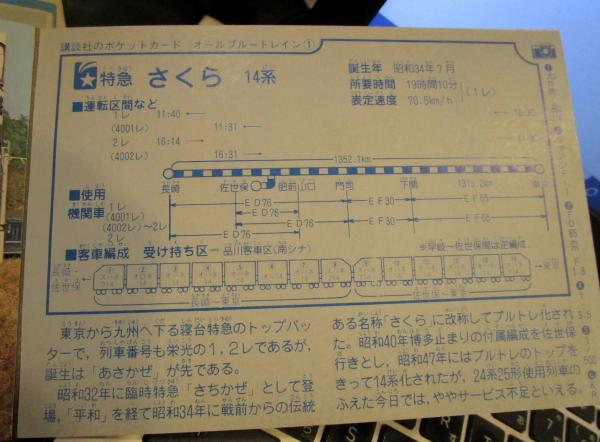 講談社のポケットカード　オールブルートレイン①
特急 さくら 14系
誕生年　昭和34年7月
所要時間　19時間10分
表定速度　70.5km/h
(1レ)
■運転区間など
1レ 11:40
(4001レ) 11:31
2レ 16:14
(4002レ) 16:31
1352.1km
長崎 佐世保 肥前山口 門司 下関 1315.2km 東京
■使用機関車
1レ ED76 EF30 EF65
(4001レ) ED76
(4002レ)~2レ ED76 EF30 EF65
2レ ED76
■客車編成　受け持ち区＝品川客車区(南シナ)
※早岐〜佐世保間は逆編成
長崎・佐世保← →東京
長崎〜東京 佐世保〜東京
東京から九州へ下る寝台特急のトップバッ
ターで，列車番号も栄光の1,2レであるが，
誕生は「あさかぜ」が先である。
昭和32年に臨時特急「さちかぜ」として登
場，「平和」を経て昭和34年に戦前からの伝統
ある名称「さくら」に改称してブルトレ化され
た。昭和40年博多止まりの付属編成を佐世保
行きとし，昭和47年にはブルトレのトップを
きって14系化されたが，24系25形使用列車の
ふえた今日では，ややサービス不足といえる。